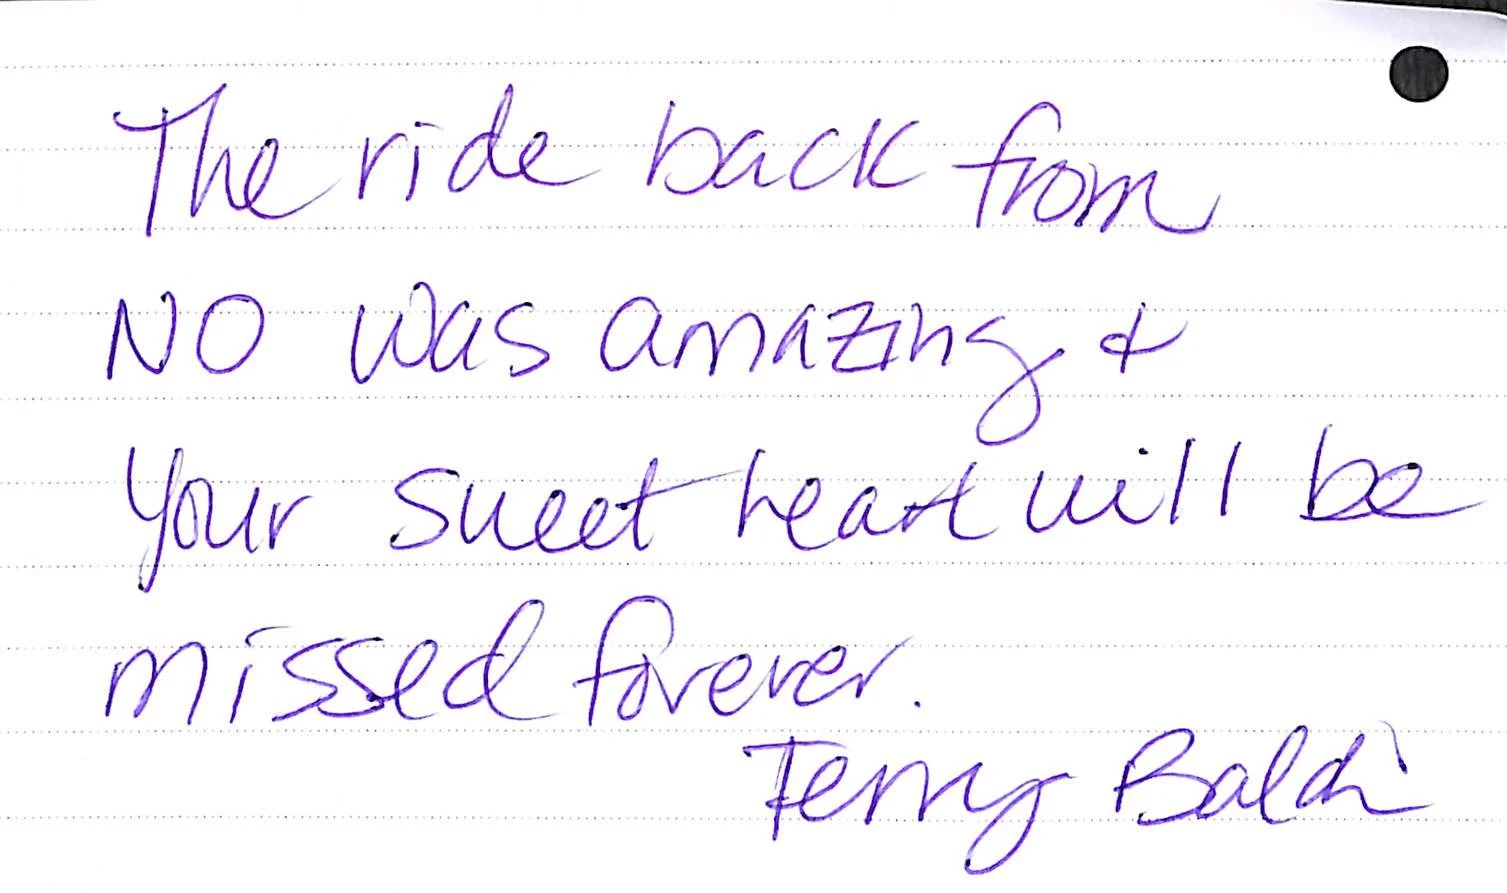 The ride back from
NO was amazing &
Your sweet heart will be
missed forever.
Terry Baldi